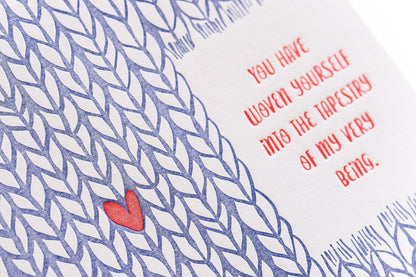 YOU HAVE
WOVEN YOURSELF
INTO THE TAPESTRY
OF MY VERY
BEING.